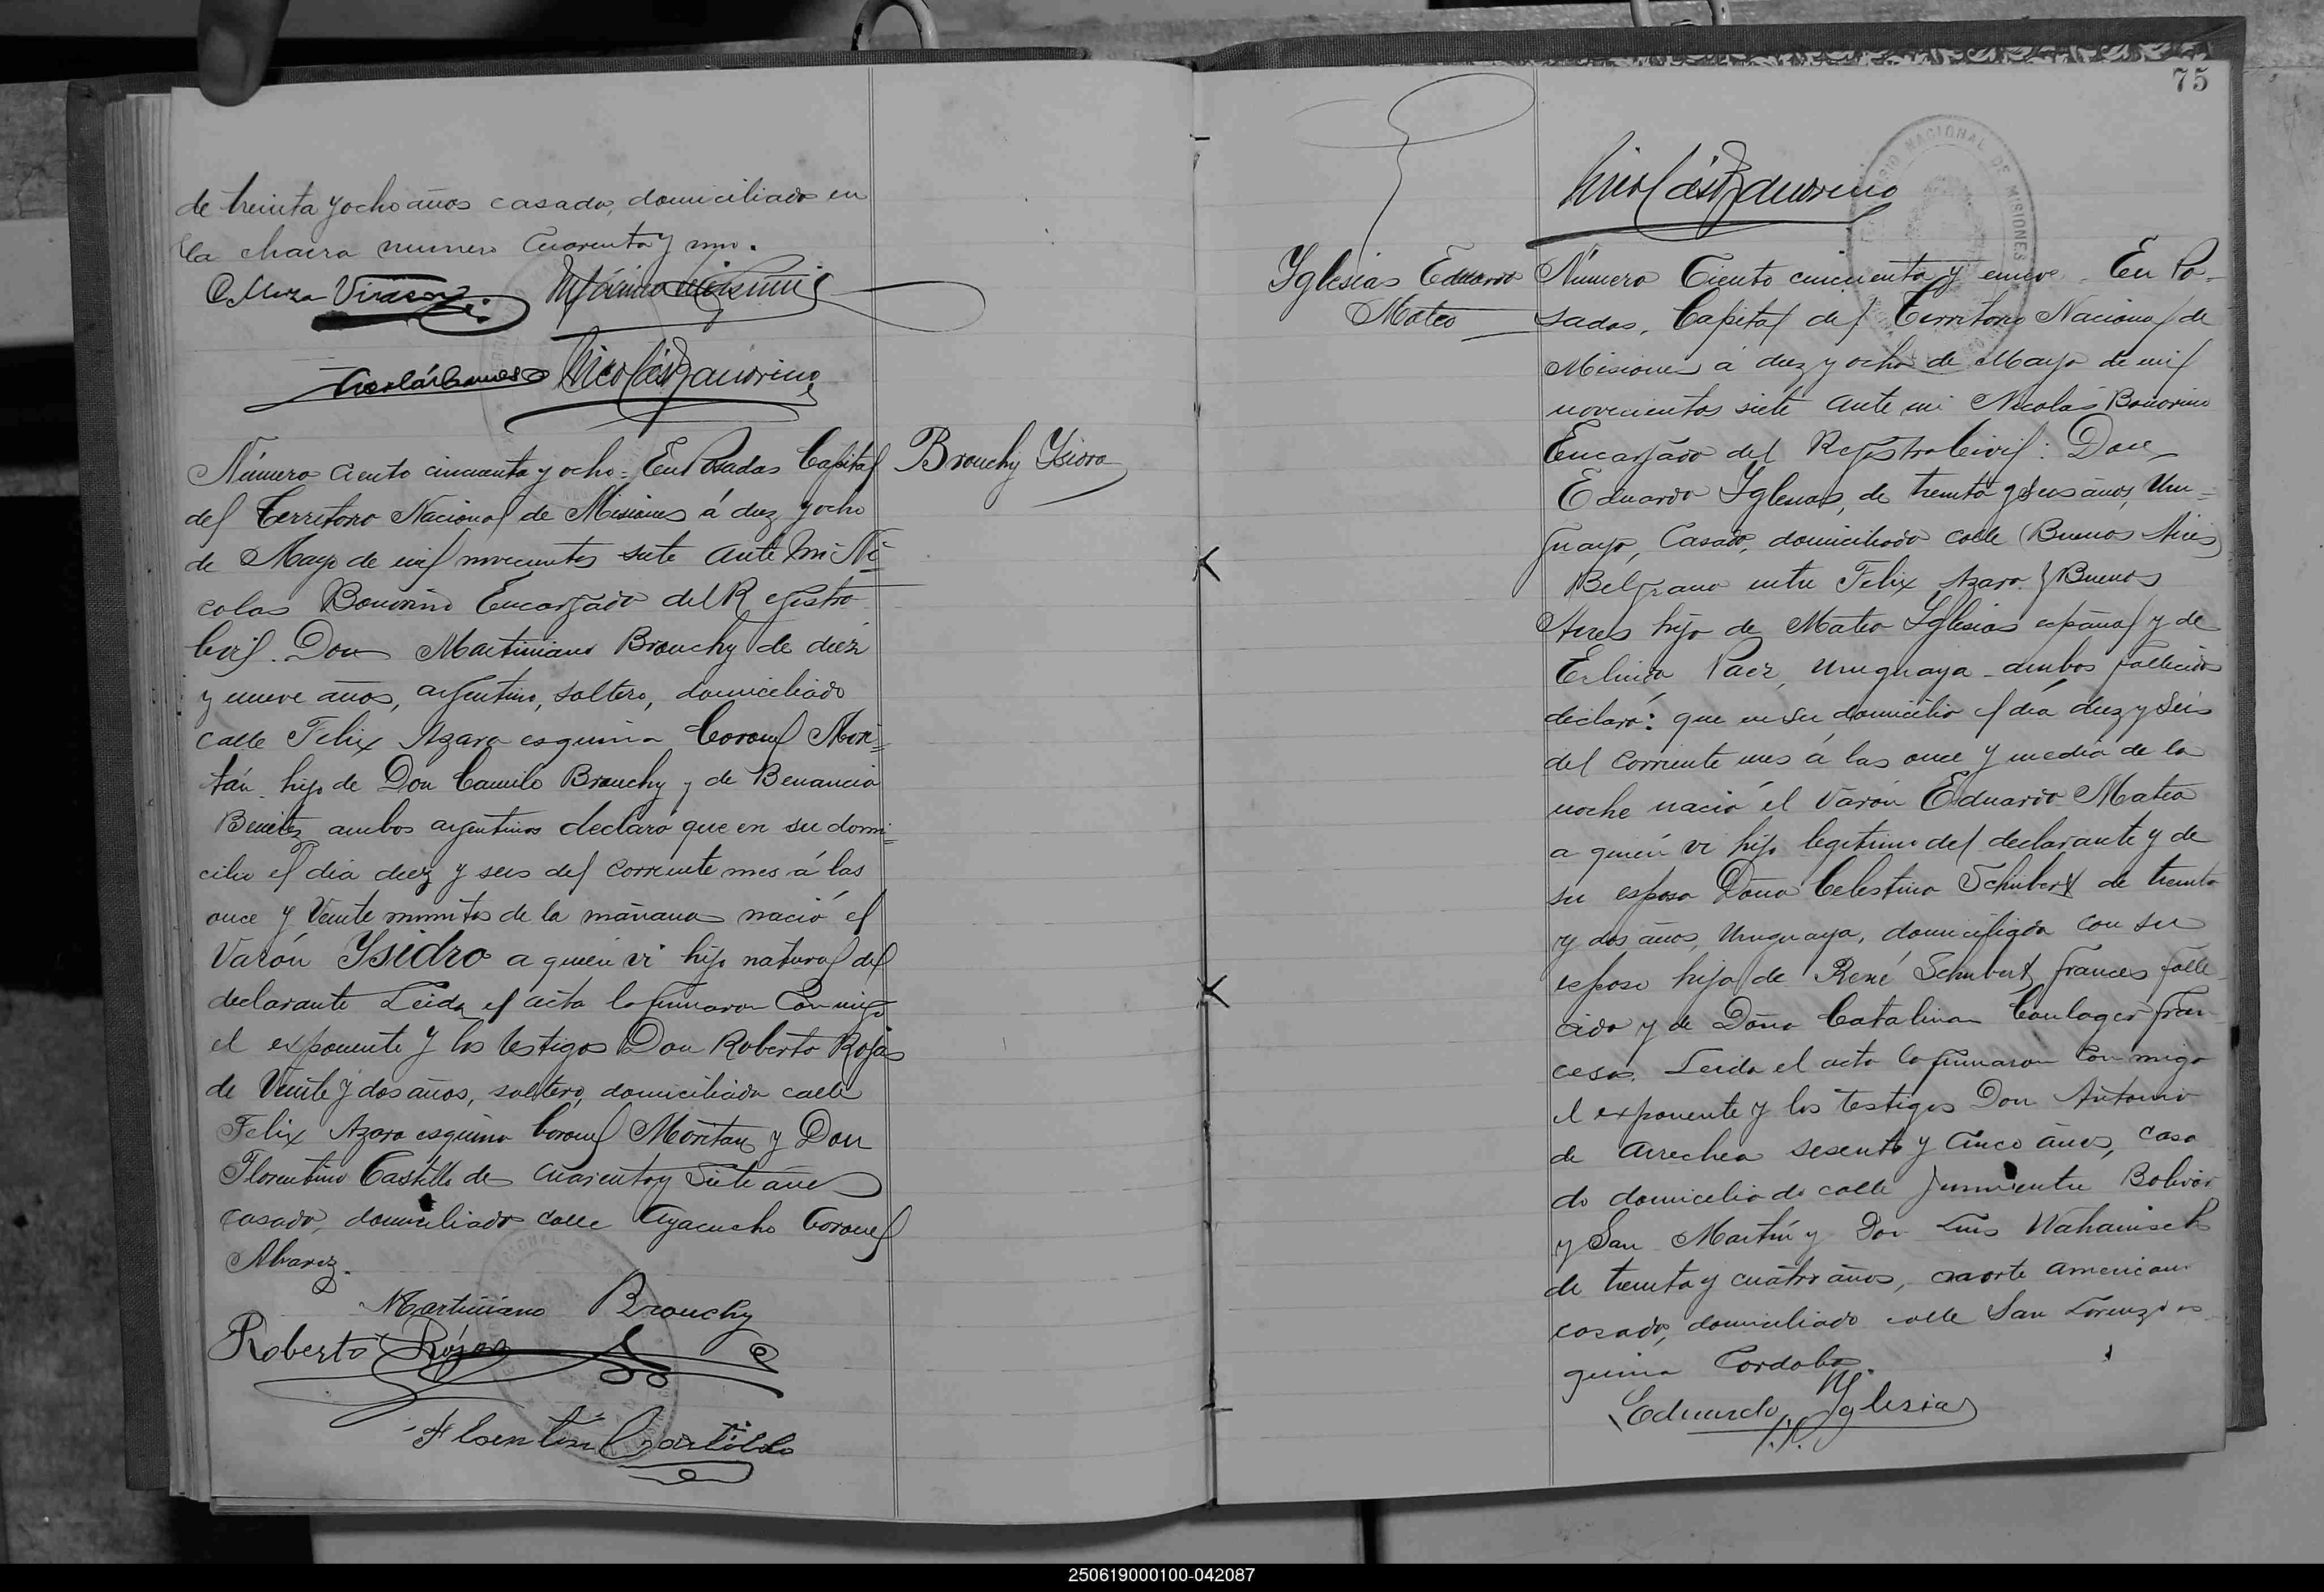 de treinta y ocho años casado, domiciliado en
la chacra numero Cuarenta y uno.
Meza Virasoro
Nicolás Bonorino
Número Ciento cincuenta y ocho = En Posadas Capital
Brouchy Ysidro
del Territorio Nacional de Misiones á diez y ocho
de Mayo de mil novecientos siete ante mi Ni
colas Bonorino Encargado del Registro
Civil. Don Martiniano Brouchy de diez
y nueve años, argentino, soltero, domiciliado
calle Felix Azara esquina Coronel Mori=
tán hijo de Don Camilo Brouchy y de Benancia
Benitez ambos argentinos declaró que en su domi=
cilio el dia diez y seis del corriente mes á las
once y Veinte minutos de la mañana nació el
Varón Ysidro a quien vi hijo natural del
declarante Leida el acta la firmaron Conmigo
el exponente y los testigos Don Roberto Rojas
de Veinte y dos años, soltero, domiciliado calle
Felix Azara esquina Coronel Moritan y Don
Florentino Castillo de Cuarenta y Siete años
casado, domiciliado calle Ayacucho Coronel
Alvarez.
Martiniano Brouchy
Roberto Rójas
Florentin Castillo
75
TERRITORIO NACIONAL DE MISIONES
Nicolás Bonorino
Yglesias Eduardo
Mateo
Número Ciento cincuenta y nueve. En Po-
sadas, Capital del Territorio Nacional de
Misiones á diez y ocho de Mayo de mil
novecientos siete ante mi Nicolás Bonorino
Encargado del Registro Civil: Don
Eduardo Yglesias, de treinta y seis años, Uru=
guayo, Casado, domiciliado calle (Buenos Aires)
Belgrano entre Felix Azara y Buenos
Aires hijo de Mateo Yglesias español y de
Erlinda Paez, Uruguaya ambos fallecidos
declaró: que en su domicilio el día diez y Seis
del Corriente mes á las once y media de la
noche nació el Varón Eduardo Mateo
a quien vi hijo legitimo del declarante y de
su esposa Doña Celestina Schubert de treinta
y dos años, Uruguaya, domiciliada con su
esposo hija de René Schubert, frances falle
cido y de Doña Catalina Coulager fran
cesa. Leida el acta la firmaron Conmigo
el exponente y los testigos Don Antonio
de Arrechea sesenta y Cinco años, casa
do domiciliado calle Junin entre Bolivar
y San Martín y Don Luis
de treinta y cuatro años, norte americano
casado, domiciliado calle San Lorenzo es
quina Cordoba.
Eduardo Yglesias